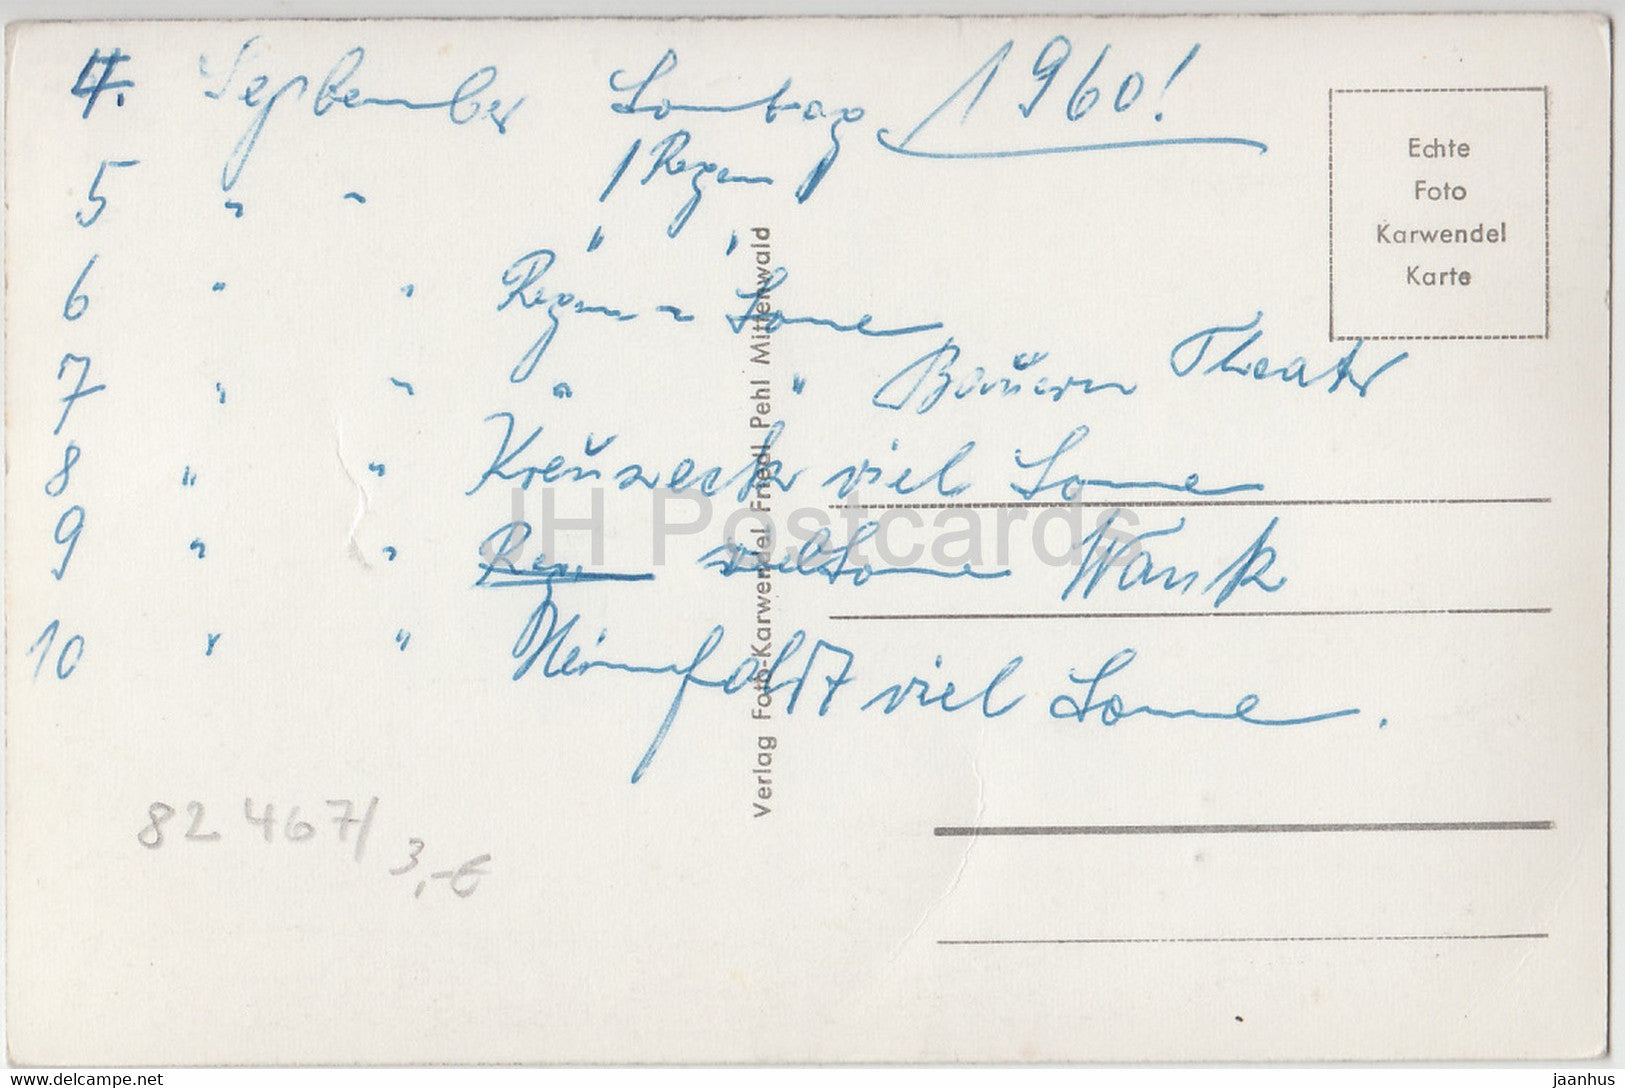 4. September Sonntag 1960!
/ Regen /
5 " "
" "
6 " " Regen u Sonne
7 " " " " Bauern Theater
8 " " Kreuzeck viel Sonne
9 " " Regen viel Sonne Wank
10 " " Heimfahrt viel Sonne.
Echte
Foto
Karwendel
Karte
Verlag Foto-Karwendel Friedl Pehl Mittenwald
JH Postcards
82 467/
3,-€
www.delcampe.net
jaanhus